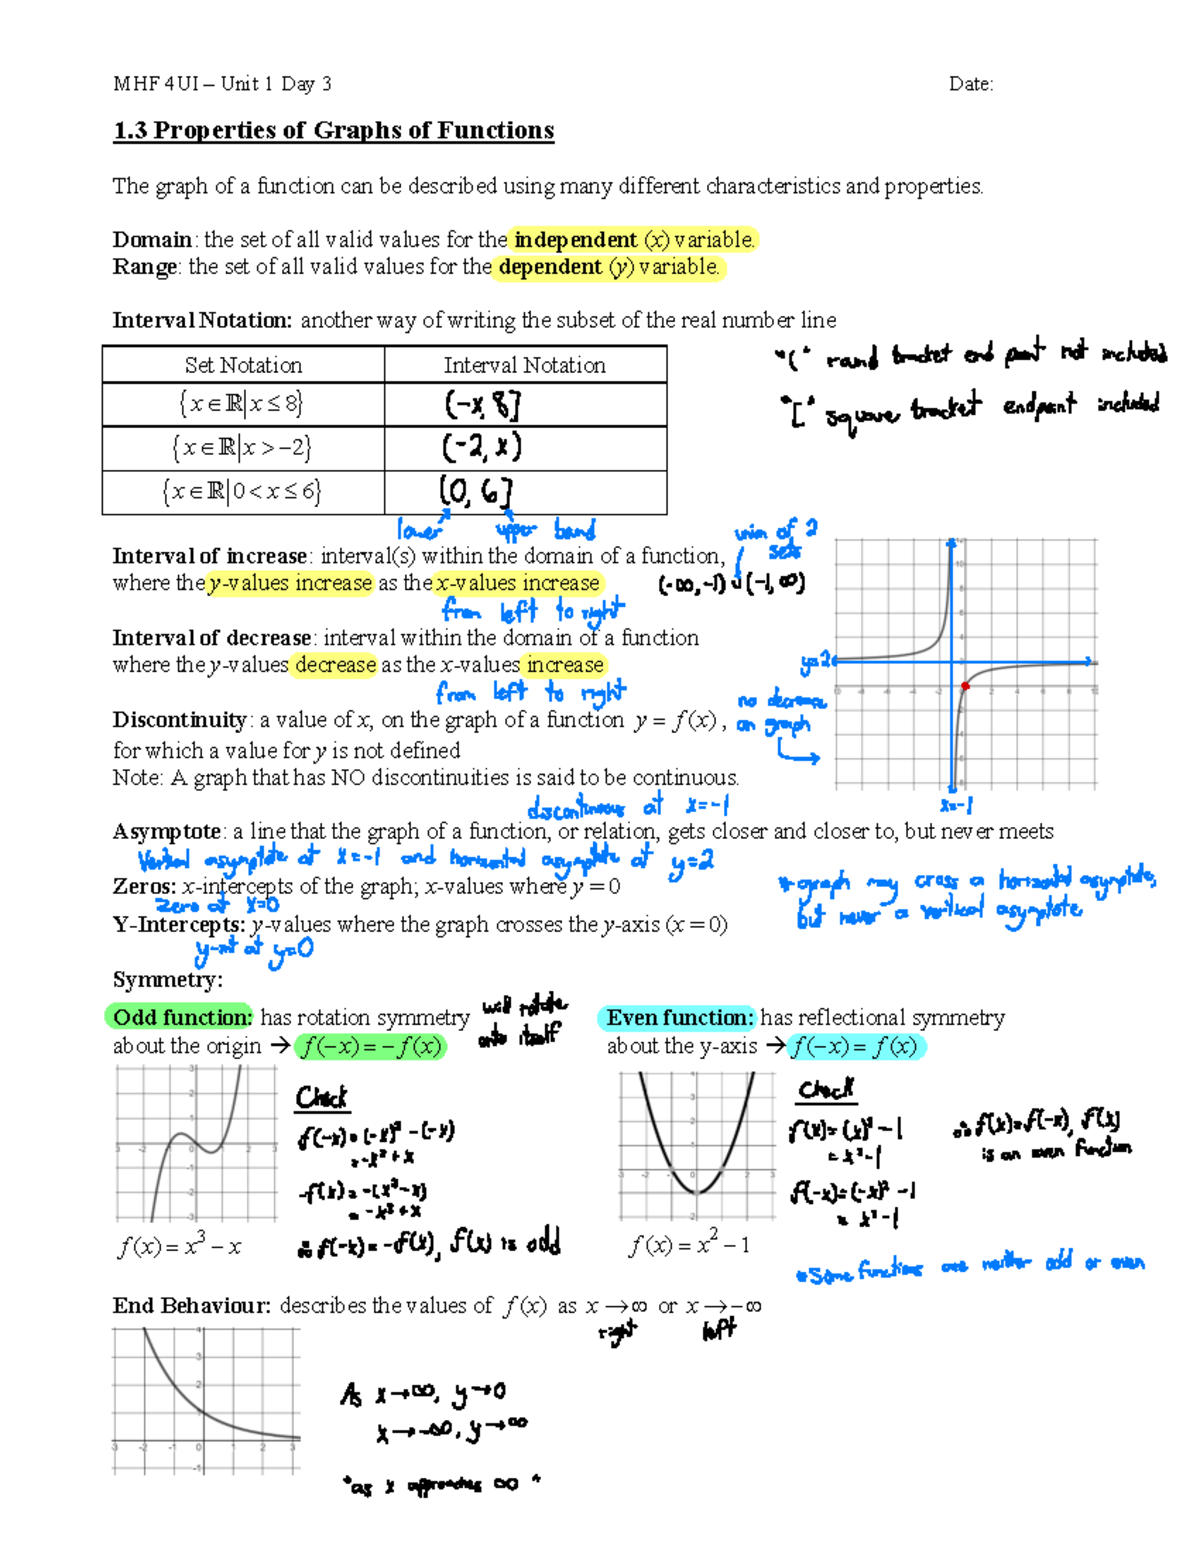 MHF 4UI – Unit 1 Day 3 Date:
1.3 Properties of Graphs of Functions
The graph of a function can be described using many different characteristics and properties.
Domain: the set of all valid values for the independent (x) variable.
Range: the set of all valid values for the dependent (y) variable.
Interval Notation: another way of writing the subset of the real number line
Set Notation Interval Notation
{x∈ℝ|x≤8} (-x, 8]
{x∈ℝ|x>−2} (-2, x)
{x∈ℝ|0<x≤6} [0, 6]
"(" round bracket end point not included
"[" square bracket endpoint included
lower upper band
Interval of increase: interval(s) within the domain of a function,
where the y-values increase as the x-values increase
from left to right
union of 2
sets
(-∞,-1) ∪ (-1, ∞)
Interval of decrease: interval within the domain of a function
where the y-values decrease as the x-values increase
from left to right
y=2
no decrease
on graph
x=-1
Discontinuity: a value of x, on the graph of a function y = f(x),
for which a value for y is not defined
Note: A graph that has NO discontinuities is said to be continuous.
discontinuous at x=-1
Asymptote: a line that the graph of a function, or relation, gets closer and closer to, but never meets
Vertical asymptote at x=-1 and horizontal asymptote at y=2
Zeros: x-intercepts of the graph; x-values where y = 0
Zero at x=0
* graph may cross a horizontal asymptote,
but never a vertical asymptote
Y-Intercepts: y-values where the graph crosses the y-axis (x = 0)
y-int at y=0
Symmetry:
Odd function: has rotation symmetry
about the origin → f(−x) = −f(x)
will rotate
onto itself
Check
f(-x)=(-x)³-(-x)
=-x³+x
-f(x)=-(x³-x)
=-x³+x
∴ f(-x)=-f(x), f(x) is odd
f(x) = x³ − x
Even function: has reflectional symmetry
about the y-axis → f(−x) = f(x)
Check
f(x)=(x)²-1
=x²-1
f(-x)=(-x)²-1
=x²-1
∴ f(x)=f(-x), f(x)
is an even function
f(x) = x² − 1
*Some functions are neither odd or even
End Behaviour: describes the values of f(x) as x →∞ or x →−∞
right left
As x→∞, y→0
x→-∞, y→∞
"as x approaches ∞"